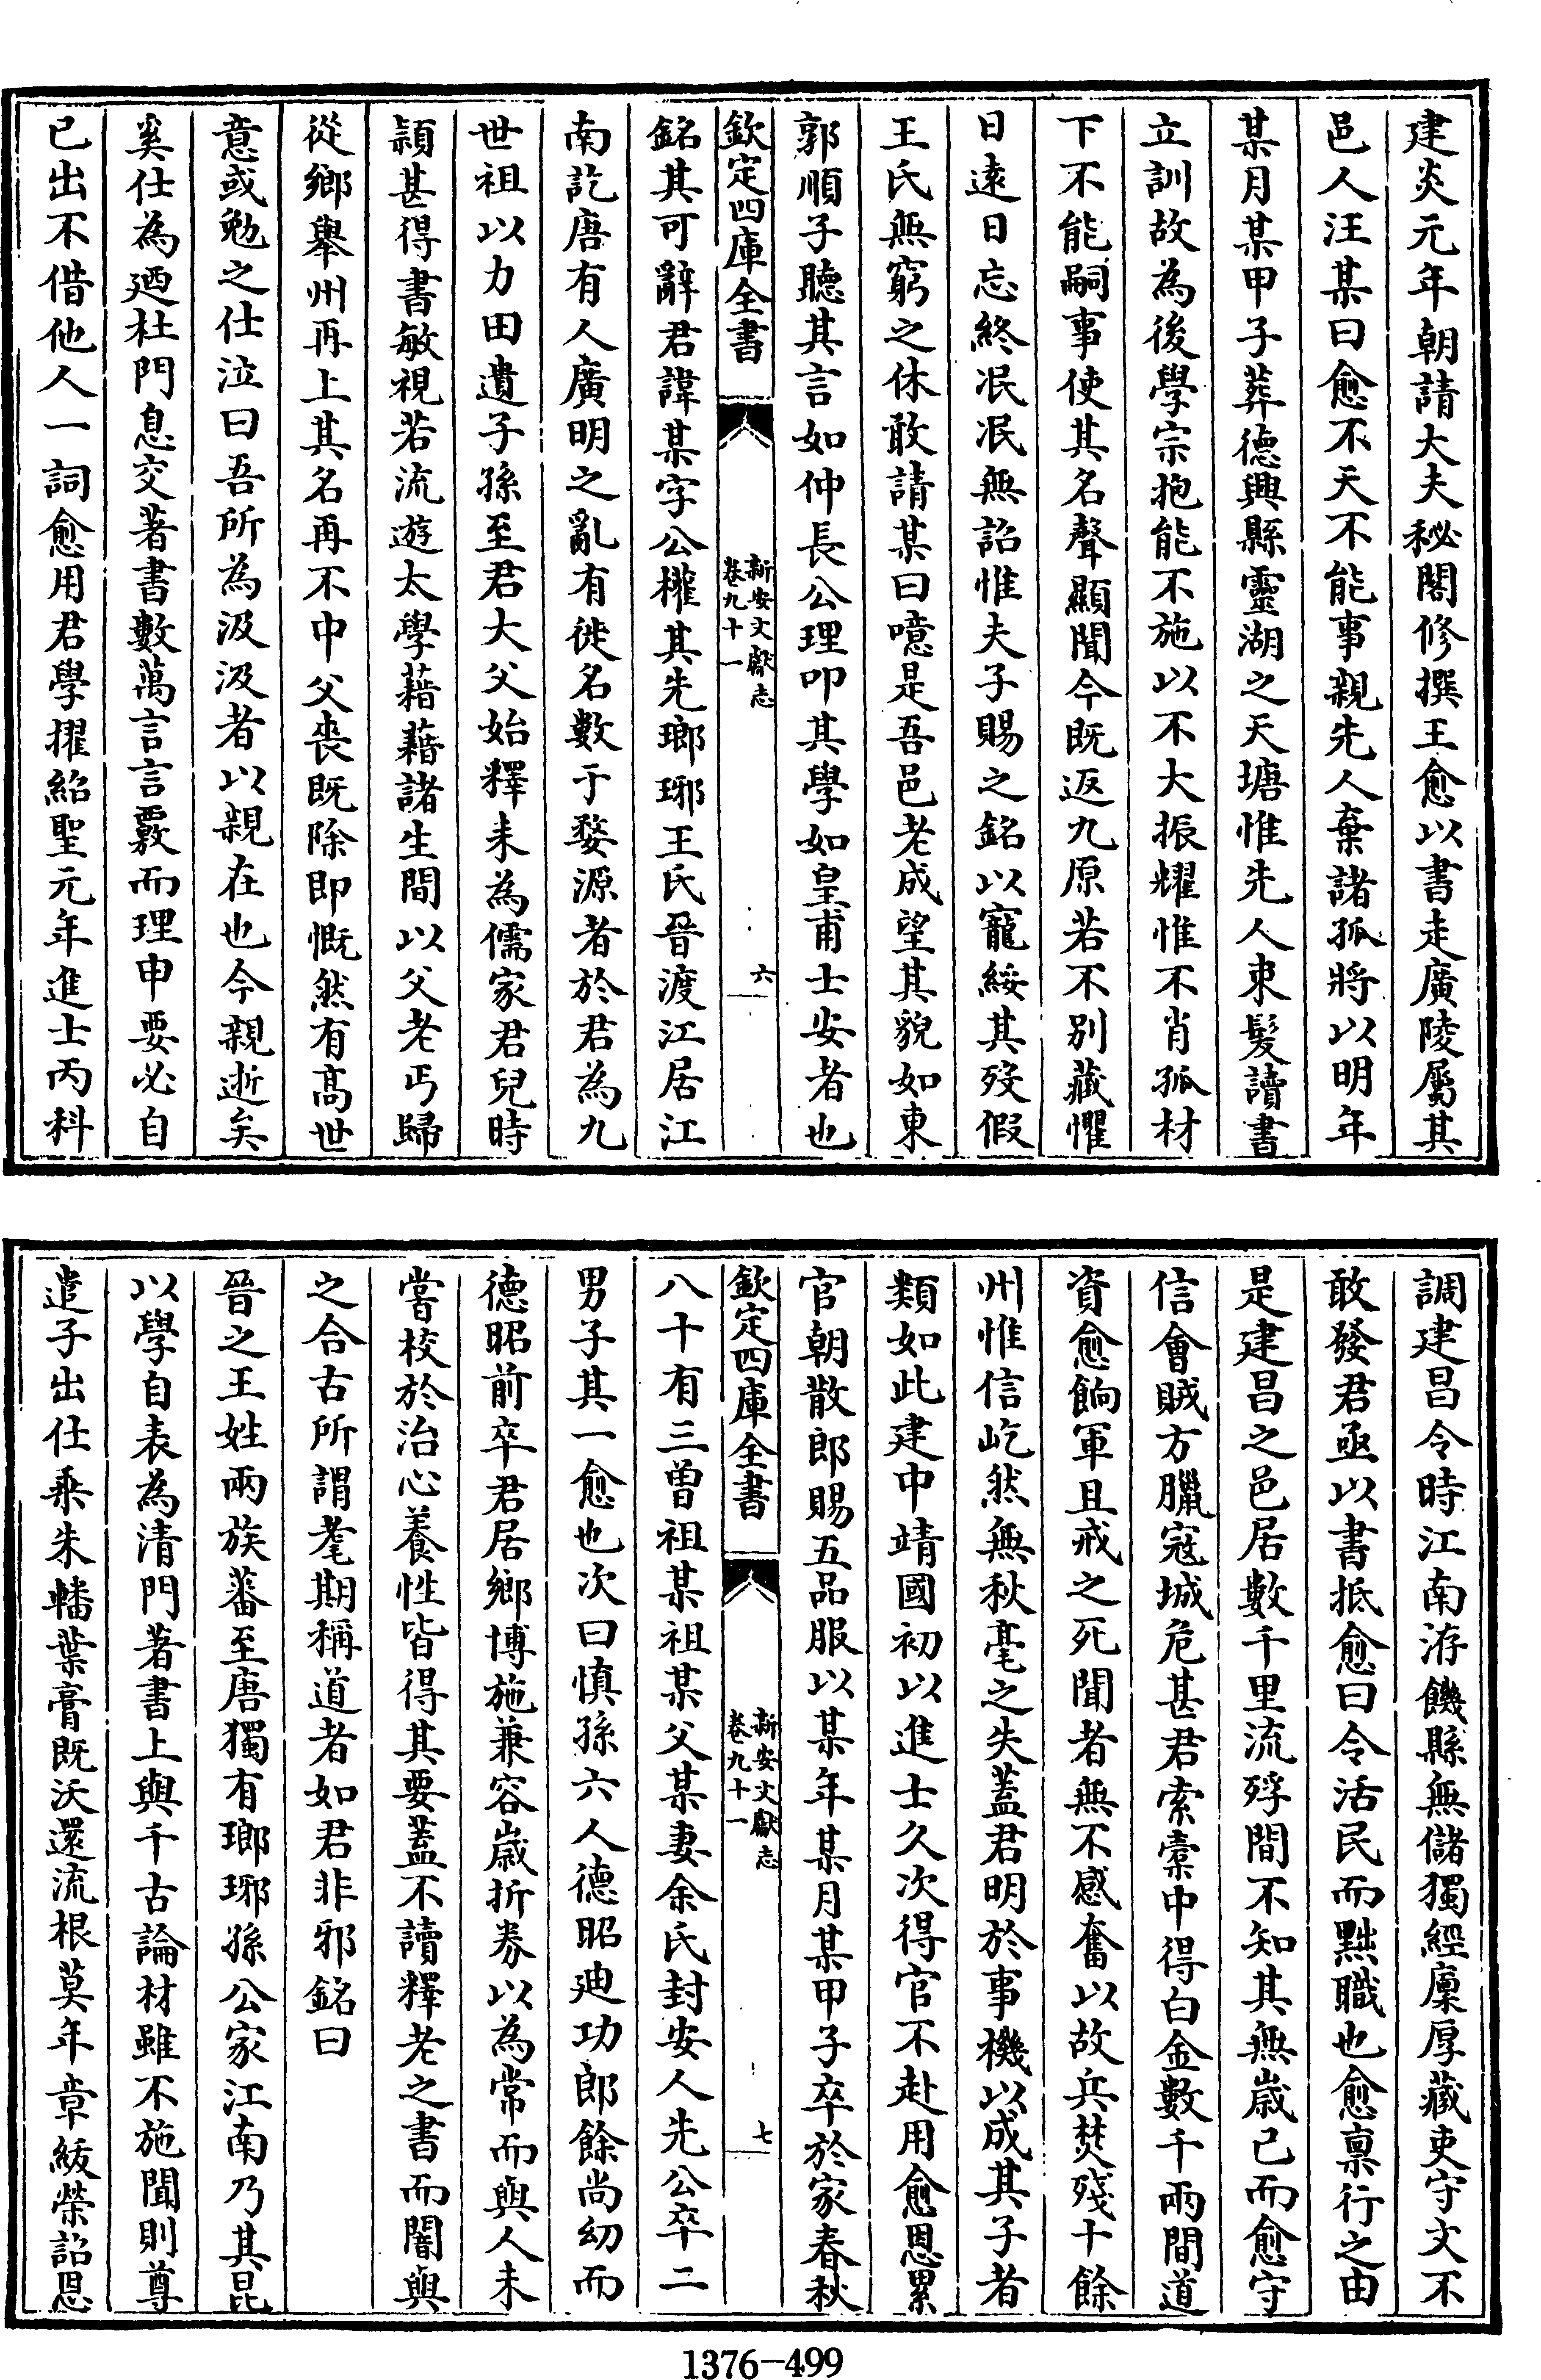 建炎元年朝請大夫秘閣修撰王愈以書走廣陵屬其
邑人汪某曰愈不天不能事親先人棄諸孤將以明年
某月某甲子葬德興縣靈湖之天塘惟先人束髮讀書
立訓故為後學宗抱能不施以不大振耀惟不肖孤材
下不能嗣事使其名聲顯聞今既返九原若不别藏懼
日逺日忘終泯泯無詔惟夫子賜之銘以寵綏其歿假
王氏無窮之休敢請某曰噫是吾邑老成望其貌如東
郭順子聽其言如仲長公理叩其學如皇甫士安者也
欽定四庫全書
新安文獻志
卷九十一
六
銘其可辭君諱某字公權其先瑯琊王氏晉渡江居江
南訖唐有人廣明之亂有徙名數于婺源者於君為九
世祖以力田遺子孫至君大父始釋耒為儒家君兒時
頴甚得書敏視若流遊太學藉藉諸生間以父老丐歸
從鄉舉州再上其名再不中父喪既除即慨然有髙世
意或勉之仕泣曰吾所為汲汲者以親在也今親逝矣
奚仕為廼杜門息交著書數萬言言覈而理申要必自
已出不借他人一詞愈用君學擢紹聖元年進士丙科
調建昌令時江南洊饑縣無儲獨經廩厚藏吏守文不
敢發君亟以書抵愈曰令活民而黜職也愈禀行之由
是建昌之邑居數千里流殍間不知其無歲已而愈守
信會賊方臘寇城危甚君索橐中得白金數千兩間道
資愈餉軍且戒之死聞者無不感奮以故兵焚殘十餘
州惟信屹然無秋毫之失蓋君明於事機以成其子者
類如此建中靖國初以進士久次得官不赴用愈恩累
官朝散郎賜五品服以某年某月某甲子卒於家春秋
欽定四庫全書
新安文獻志
卷九十一
七
八十有三曾祖某祖某父某妻余氏封安人先公卒二
男子其一愈也次曰慎孫六人德昭廸功郎餘尚幼而
德昭前卒君居鄉博施兼容嵗折劵以為常而與人未
嘗校於治心養性皆得其要蓋不讀釋老之書而闇與
之合古所謂耄期稱道者如君非邪銘曰
晉之王姓兩族蕃至唐獨有瑯琊孫公家江南乃其昆
以學自表為清門著書上與千古論材雖不施聞則尊
遣子出仕乘朱轓葉膏既沃還流根莫年章紱榮詔恩
1376-499